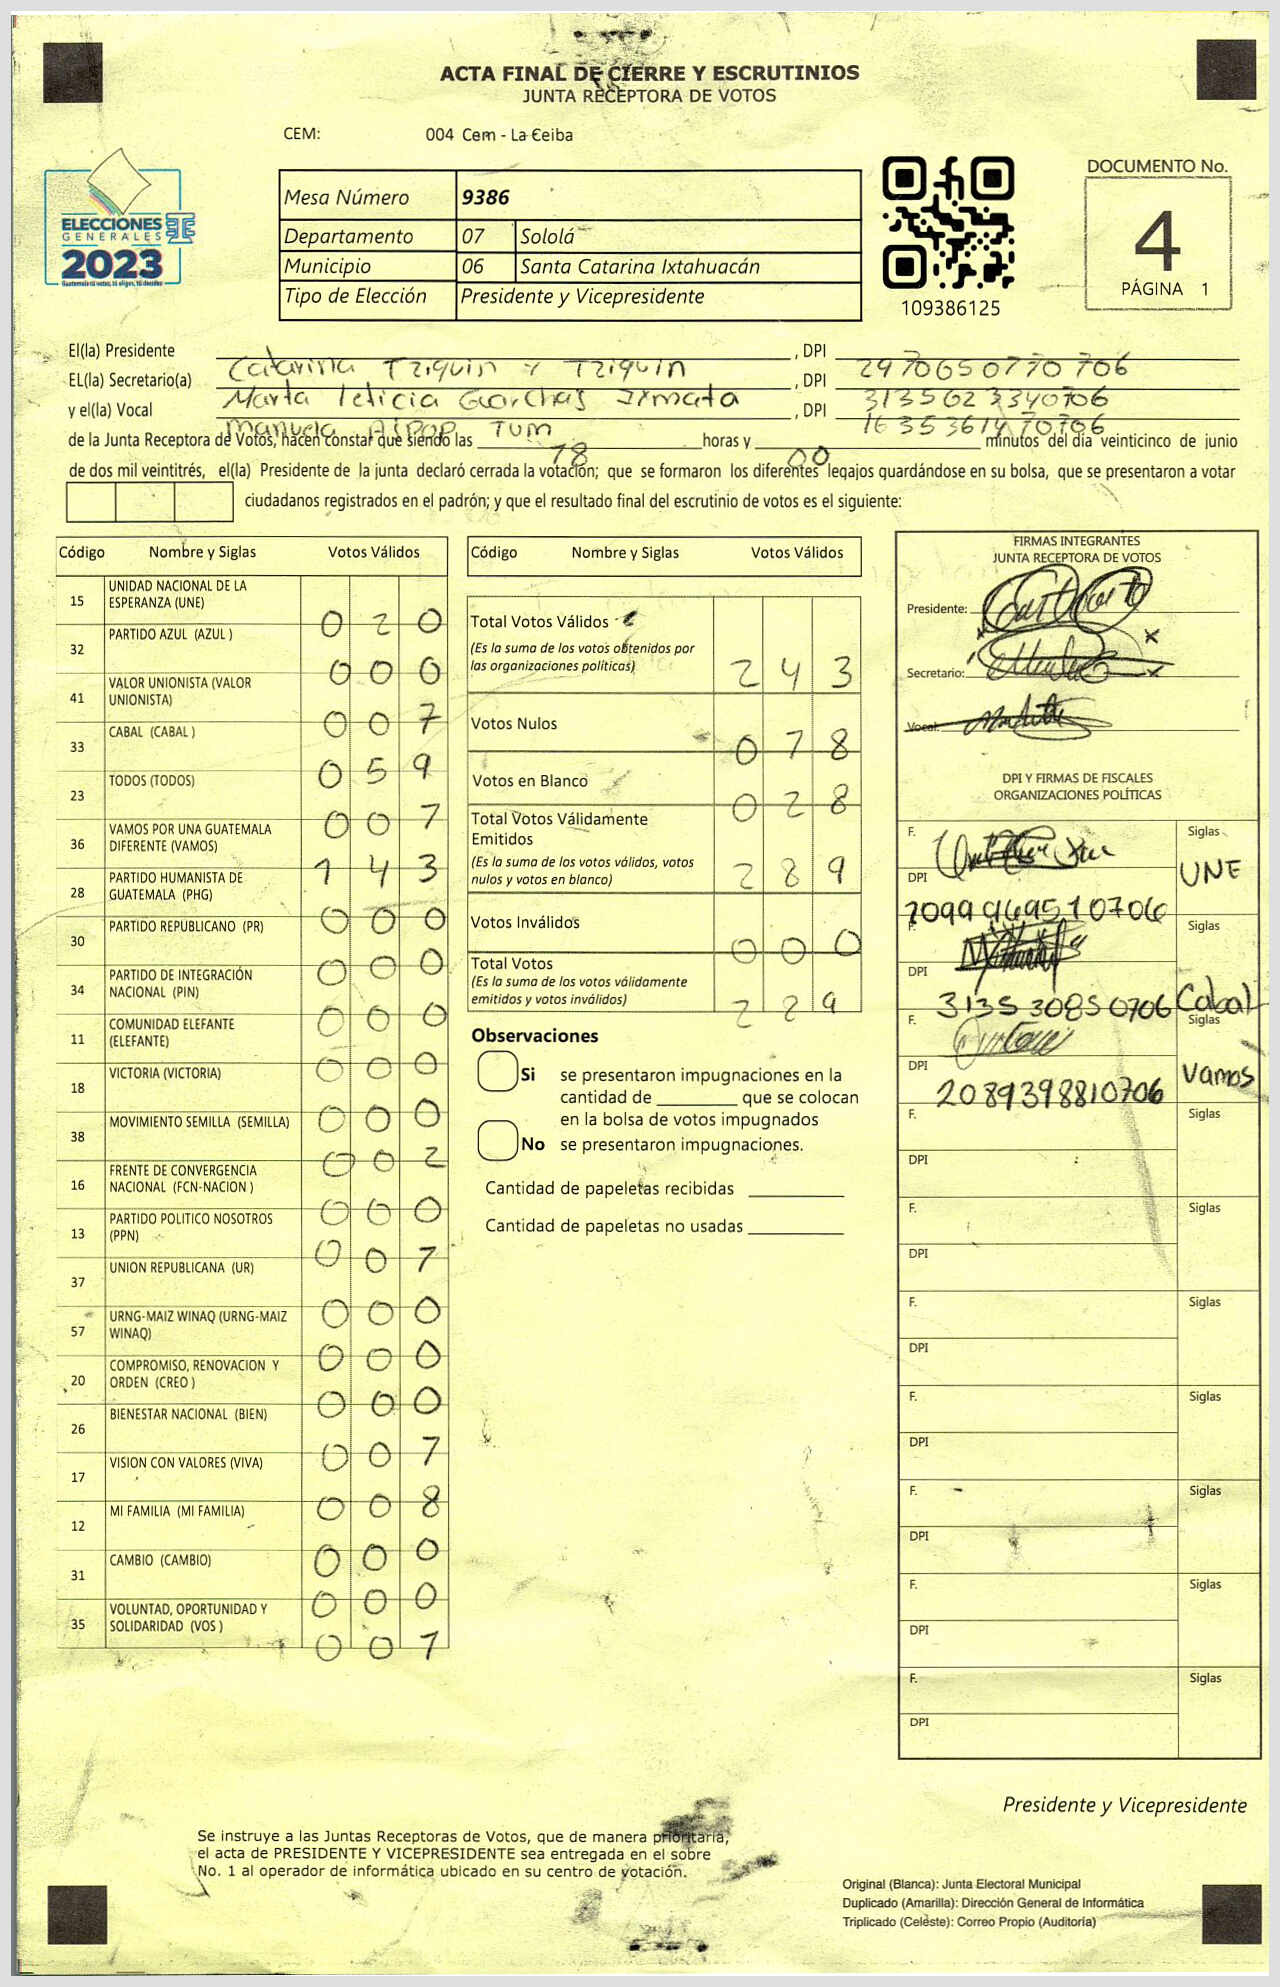 ACTA FINAL DE CIERRE Y ESCRUTINIOS
JUNTA RECEPTORA DE VOTOS
CEM: 004 Cem - La Ceiba
ELECCIONES
GENERALES
2023
Guatemala tú votas, tú eliges, tú decides
Mesa Número 9386
Departamento 07 Sololá
Municipio 06 Santa Catarina Ixtahuacán
Tipo de Elección Presidente y Vicepresidente
109386125
DOCUMENTO No.
4
PÁGINA 1
El(la) Presidente Catarina Tziquin y Tziquin, DPI 2970650770706
EL(la) Secretario(a) Marta leticia Guarchaj Ixmata, DPI 3135623340706
y el(la) Vocal Manuela Tum, DPI 1635361470706
de la Junta Receptora de Votos, hacen constar que siendo las 18 horas y 00 minutos del día veinticinco de junio
de dos mil veintitrés, el(la) Presidente de la junta declaró cerrada la votación; que se formaron los diferentes legajos guardándose en su bolsa, que se presentaron a votar
ciudadanos registrados en el padrón; y que el resultado final del escrutinio de votos es el siguiente:
Código Nombre y Siglas Votos Válidos
15 UNIDAD NACIONAL DE LA ESPERANZA (UNE) 0 2 0
32 PARTIDO AZUL (AZUL ) 0 0 0
41 VALOR UNIONISTA (VALOR UNIONISTA) 0 0 7
33 CABAL (CABAL ) 0 5 9
23 TODOS (TODOS) 0 0 7
36 VAMOS POR UNA GUATEMALA DIFERENTE (VAMOS) 1 4 3
28 PARTIDO HUMANISTA DE GUATEMALA (PHG) 0 0 0
30 PARTIDO REPUBLICANO (PR) 0 0 0
34 PARTIDO DE INTEGRACIÓN NACIONAL (PIN) 0 0 0
11 COMUNIDAD ELEFANTE (ELEFANTE) 0 0 0
18 VICTORIA (VICTORIA) 0 0 0
38 MOVIMIENTO SEMILLA (SEMILLA) 0 0 2
16 FRENTE DE CONVERGENCIA NACIONAL (FCN-NACION ) 0 0 0
13 PARTIDO POLITICO NOSOTROS (PPN) 0 0 7
37 UNION REPUBLICANA (UR) 0 0 0
57 URNG-MAIZ WINAQ (URNG-MAIZ WINAQ) 0 0 0
20 COMPROMISO, RENOVACION Y ORDEN (CREO ) 0 0 0
26 BIENESTAR NACIONAL (BIEN) 0 0 7
17 VISION CON VALORES (VIVA) 0 0 8
12 MI FAMILIA (MI FAMILIA) 0 0 0
31 CAMBIO (CAMBIO) 0 0 0
35 VOLUNTAD, OPORTUNIDAD Y SOLIDARIDAD (VOS ) 0 0 7
Código Nombre y Siglas Votos Válidos
Total Votos Válidos 2 4 3
(Es la suma de los votos obtenidos por
las organizaciones políticas)
Votos Nulos 0 7 8
Votos en Blanco 0 2 8
Total Votos Válidamente
Emitidos 2 8 9
(Es la suma de los votos válidos, votos
nulos y votos en blanco)
Votos Inválidos 0 0 0
Total Votos 2 2 9
(Es la suma de los votos válidamente
emitidos y votos inválidos)
Observaciones
Si se presentaron impugnaciones en la
cantidad de ________ que se colocan
en la bolsa de votos impugnados
No se presentaron impugnaciones.
Cantidad de papeletas recibidas
Cantidad de papeletas no usadas
FIRMAS INTEGRANTES
JUNTA RECEPTORA DE VOTOS
Presidente:
Secretario:
Vocal:
DPI Y FIRMAS DE FISCALES
ORGANIZACIONES POLÍTICAS
F. Siglas UNE
DPI 2099969510706
F. Siglas Cabal
DPI 3135 30850706
F. Siglas Vamos
DPI 2089398810706
F. Siglas
DPI
F. Siglas
DPI
F. Siglas
DPI
F. Siglas
DPI
F. Siglas
DPI
F. Siglas
DPI
F. Siglas
DPI
Presidente y Vicepresidente
Se instruye a las Juntas Receptoras de Votos, que de manera prioritaria,
el acta de PRESIDENTE Y VICEPRESIDENTE sea entregada en el sobre
No. 1 al operador de informática ubicado en su centro de votación.
Original (Blanca): Junta Electoral Municipal
Duplicado (Amarilla): Dirección General de Informática
Triplicado (Celeste): Correo Propio (Auditoría)